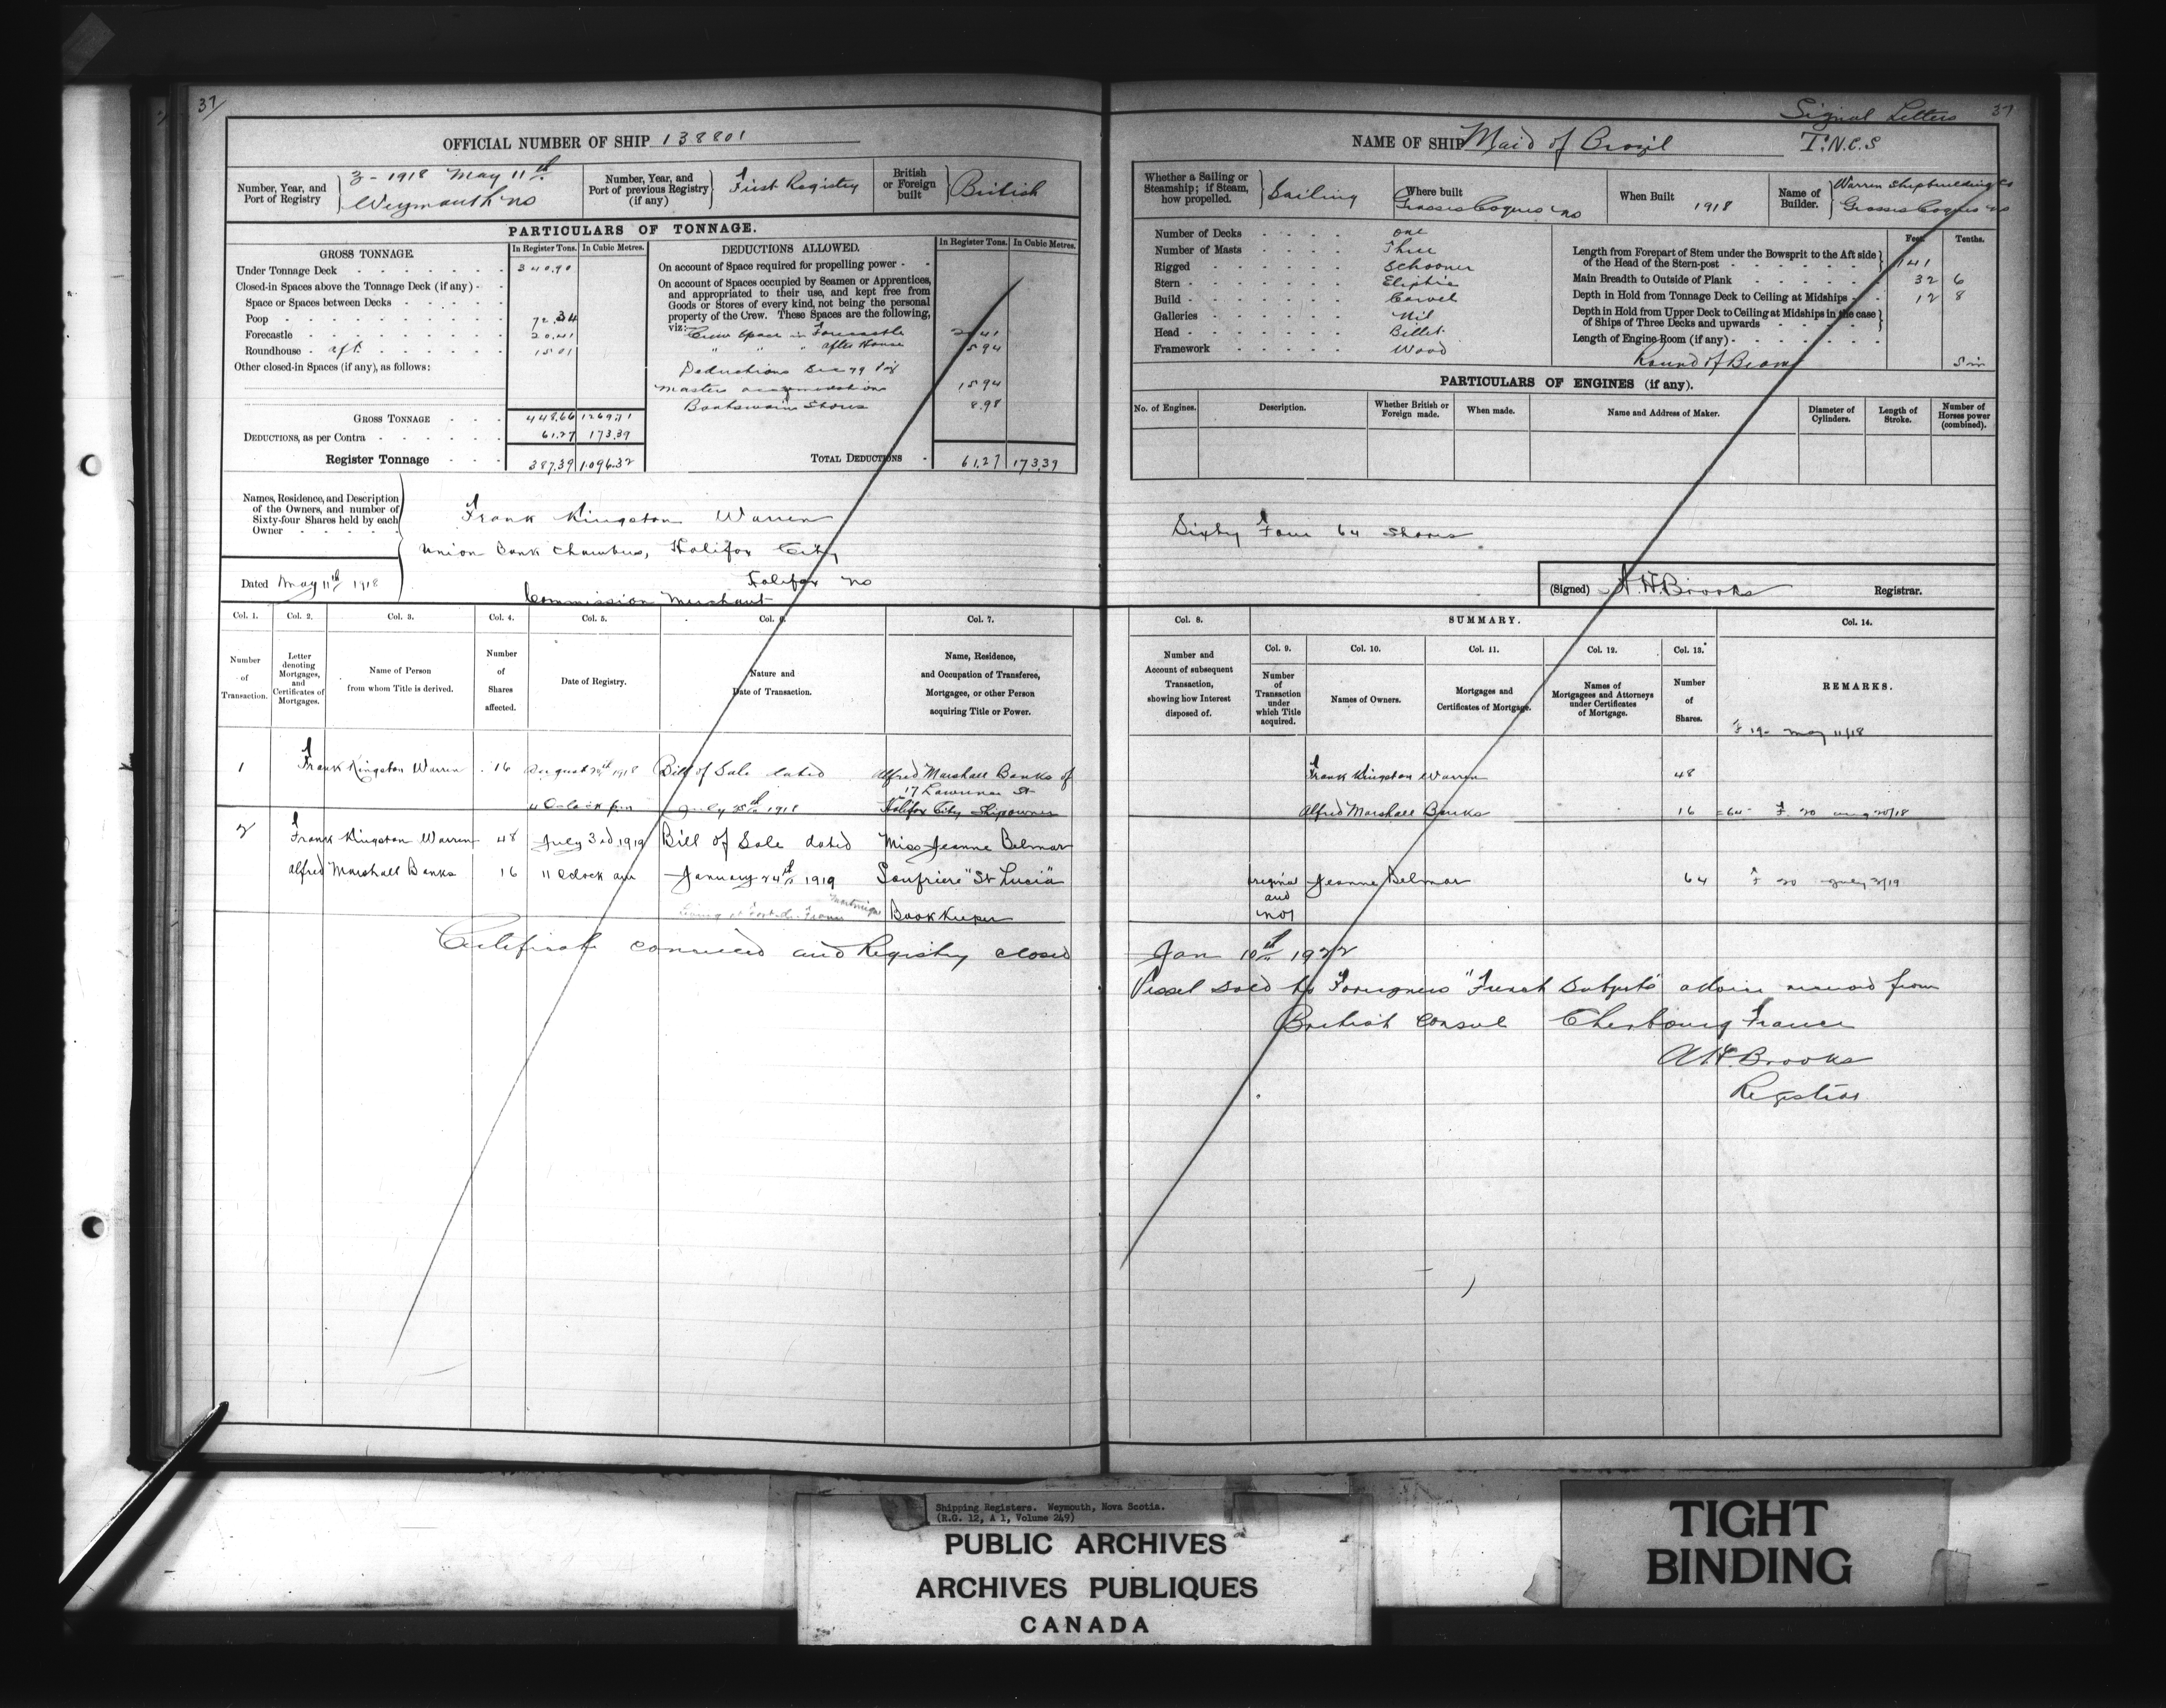 37
OFFICIAL NUMBER OF SHIP 138801
Number, Year, and Port of Registry
3 - 1918 May 11th
Weymouth NS
Number, Year, and Port of previous Registry (if any)
First Registry
British or Foreign built
British
PARTICULARS OF TONNAGE.
GROSS TONNAGE.
In Register Tons.
In Cubic Metres.
Under Tonnage Deck 340.90
Closed-in Spaces above the Tonnage Deck (if any)
Space or Spaces between Decks
Poop 72.34
Forecastle 20.41
Roundhouse aft. 15.01
Other closed-in Spaces (if any), as follows:
GROSS TONNAGE 448.66 1269.71
DEDUCTIONS, as per Contra 61.27 173.39
Register Tonnage 387.39 1096.32
DEDUCTIONS ALLOWED.
In Register Tons.
In Cubic Metres.
On account of Space required for propelling power
On account of Spaces occupied by Seamen or Apprentices,
and appropriated to their use, and kept free from
Goods or Stores of every kind, not being the personal
property of the Crew. These Spaces are the following,
viz: Crew Space in Forecastle 20.41
" " " after House 15.94
Deductions Sec 79
Masters accommodations 15.94
Boatswains Stores 8.98
TOTAL DEDUCTIONS 61.27 173.39
Names, Residence, and Description
of the Owners, and number of
Sixty-four Shares held by each
Owner
Frank Kingston Warren
Union Bank Chambers, Halifax City
Halifax NS
Commission Merchant
Dated May 11th 1918
Col. 1. Col. 2. Col. 3. Col. 4. Col. 5. Col. 6. Col. 7.
Number of Transaction.
Letter denoting Mortgages, and Certificates of Mortgages.
Name of Person from whom Title is derived.
Number of Shares affected.
Date of Registry.
Nature and Date of Transaction.
Name, Residence, and Occupation of Transferee, Mortgagee, or other Person acquiring Title or Power.
1 Frank Kingston Warren 16 August 20th 1918 Bill of Sale dated Alfred Marshall Banks of
17 Lawrence St
4 Oclock pm July 25th 1918 Halifax City Shipowner
2 Frank Kingston Warren 48 July 3rd 1919 Bill of Sale dated Miss Jeanne Belmar
Alfred Marshall Banks 16 11 Oclock am January 24th 1919 Soufriere "St Lucia"
Martinique
Book Keeper
Certificate cancelled and Registry closed
Signal Letters
37
NAME OF SHIP Maid of Brazil
T.N.C.S
Whether a Sailing or Steamship; if Steam, how propelled.
Sailing
Where built
Grosses Coques NS
When Built 1918
Name of Builder.
Warren Shipbuilding Co
Grosses Coques NS
Number of Decks One
Number of Masts Three
Rigged Schooner
Stern Eliptic
Build Carvel
Galleries Nil
Head Billet
Framework Wood
Feet. Tenths.
Length from Forepart of Stem under the Bowsprit to the Aft side
of the Head of the Stern-post 141
Main Breadth to Outside of Plank 32 6
Depth in Hold from Tonnage Deck to Ceiling at Midships 12 8
Depth in Hold from Upper Deck to Ceiling at Midships in the case
of Ships of Three Decks and upwards
Length of Engine Room (if any)
Round of Beam 5 in
PARTICULARS OF ENGINES (if any).
No. of Engines.
Description.
Whether British or Foreign made.
When made.
Name and Address of Maker.
Diameter of Cylinders.
Length of Stroke.
Number of Horses power (combined).
Sixty Four 64 Shares
(Signed) A. H. Brooks Registrar.
Col. 8.
SUMMARY.
Col. 14.
Col. 9. Col. 10. Col. 11. Col. 12. Col. 13.
Number and Account of subsequent Transaction, showing how Interest disposed of.
Number of Transaction under which Title acquired.
Names of Owners.
Mortgages and Certificates of Mortgage.
Names of Mortgagees and Attorneys under Certificates of Mortgage.
Number of Shares.
REMARKS.
F 19 - May 11/18
Frank Kingston Warren 48
Alfred Marshall Banks 16 = 64 F 20 Aug 20/18
Original and No 1
Jeanne Belmar 64 F 20 July 3/19
Jan 10th 1922
Vessel sold to Foreigners "French Subjects" advice received from
British Consul Cherbourg France
A H. Brooks
Registrar
Shipping Registers. Weymouth, Nova Scotia.
(R.G. 12, A 1, Volume 249)
PUBLIC ARCHIVES
ARCHIVES PUBLIQUES
CANADA
TIGHT
BINDING